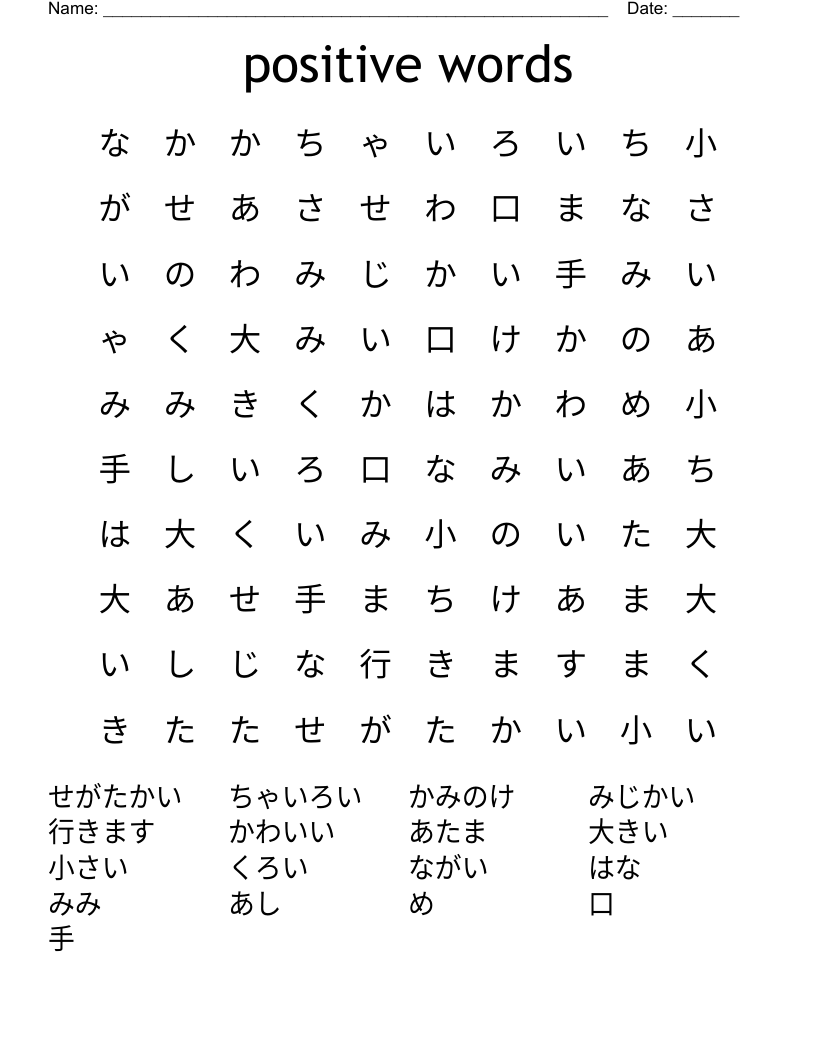 Name: _____________________________________________________ Date: _______
positive words
な か か ち ゃ い ろ い ち 小
が せ あ さ せ わ 口 ま な さ
い の わ み じ か い 手 み い
ゃ く 大 み い 口 け か の あ
み み き く か は か わ め 小
手 し い ろ 口 な み い あ ち
は 大 く い み 小 の い た 大
大 あ せ 手 ま ち け あ ま 大
い し じ な 行 き ま す ま く
き た た せ が た か い 小 い
せがたかい ちゃいろい かみのけ みじかい
行きます かわいい あたま 大きい
小さい くろい ながい はな
みみ あし め 口
手